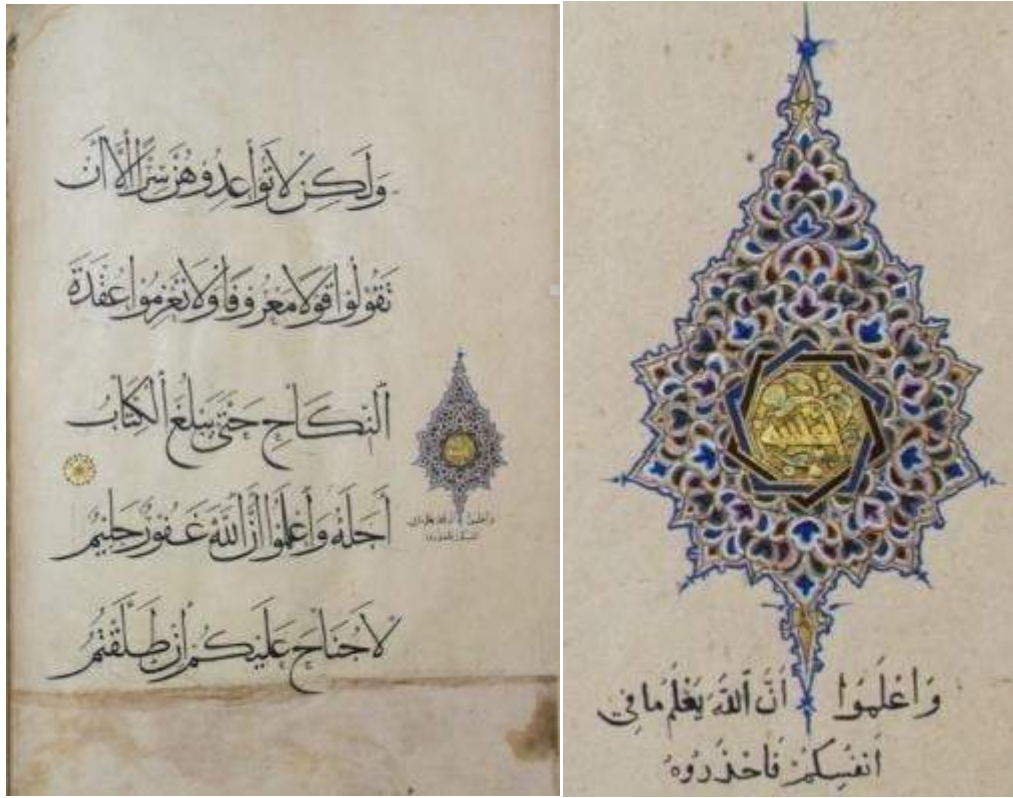 وَلَكِنْ لَا تُوَاعِدُوهُنَّ سِرًّا إِلَّا أَنْ
تَقُولُوا قَوْلًا مَعْرُوفًا وَلَا تَعْزِمُوا عُقْدَةَ
ٱلنِّكَاحِ حَتَّى يَبْلُغَ ٱلْكِتَابُ
أَجَلَهُ وَٱعْلَمُوا أَنَّ ٱللَّهَ غَفُورٌ حَلِيمٌ
لَا جُنَاحَ عَلَيْكُمْ إِنْ طَلَّقْتُمُ
وَاعْلَمُوا أَنَّ ٱللَّهَ يَعْلَمُ مَا فِي
أَنْفُسِكُمْ فَاحْذَرُوهُ
وَاعْلَمُوا أَنَّ ٱللَّهَ يَعْلَمُ مَا فِي
أَنْفُسِكُمْ فَاحْذَرُوهُ